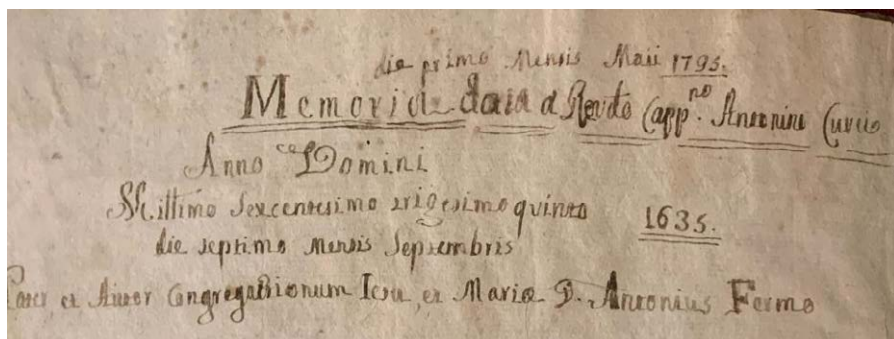 die primo Mensis Maii 1795.
Memoria data a Revdo Capp.no Antonino Curcio
Anno Domini
Millimo Sexcentesimo trigesimo quinto 1635.
die septimo mensis Septembris
Pater et Autor Congregationum Iesu, et Mariæ D. Antonius Fermo